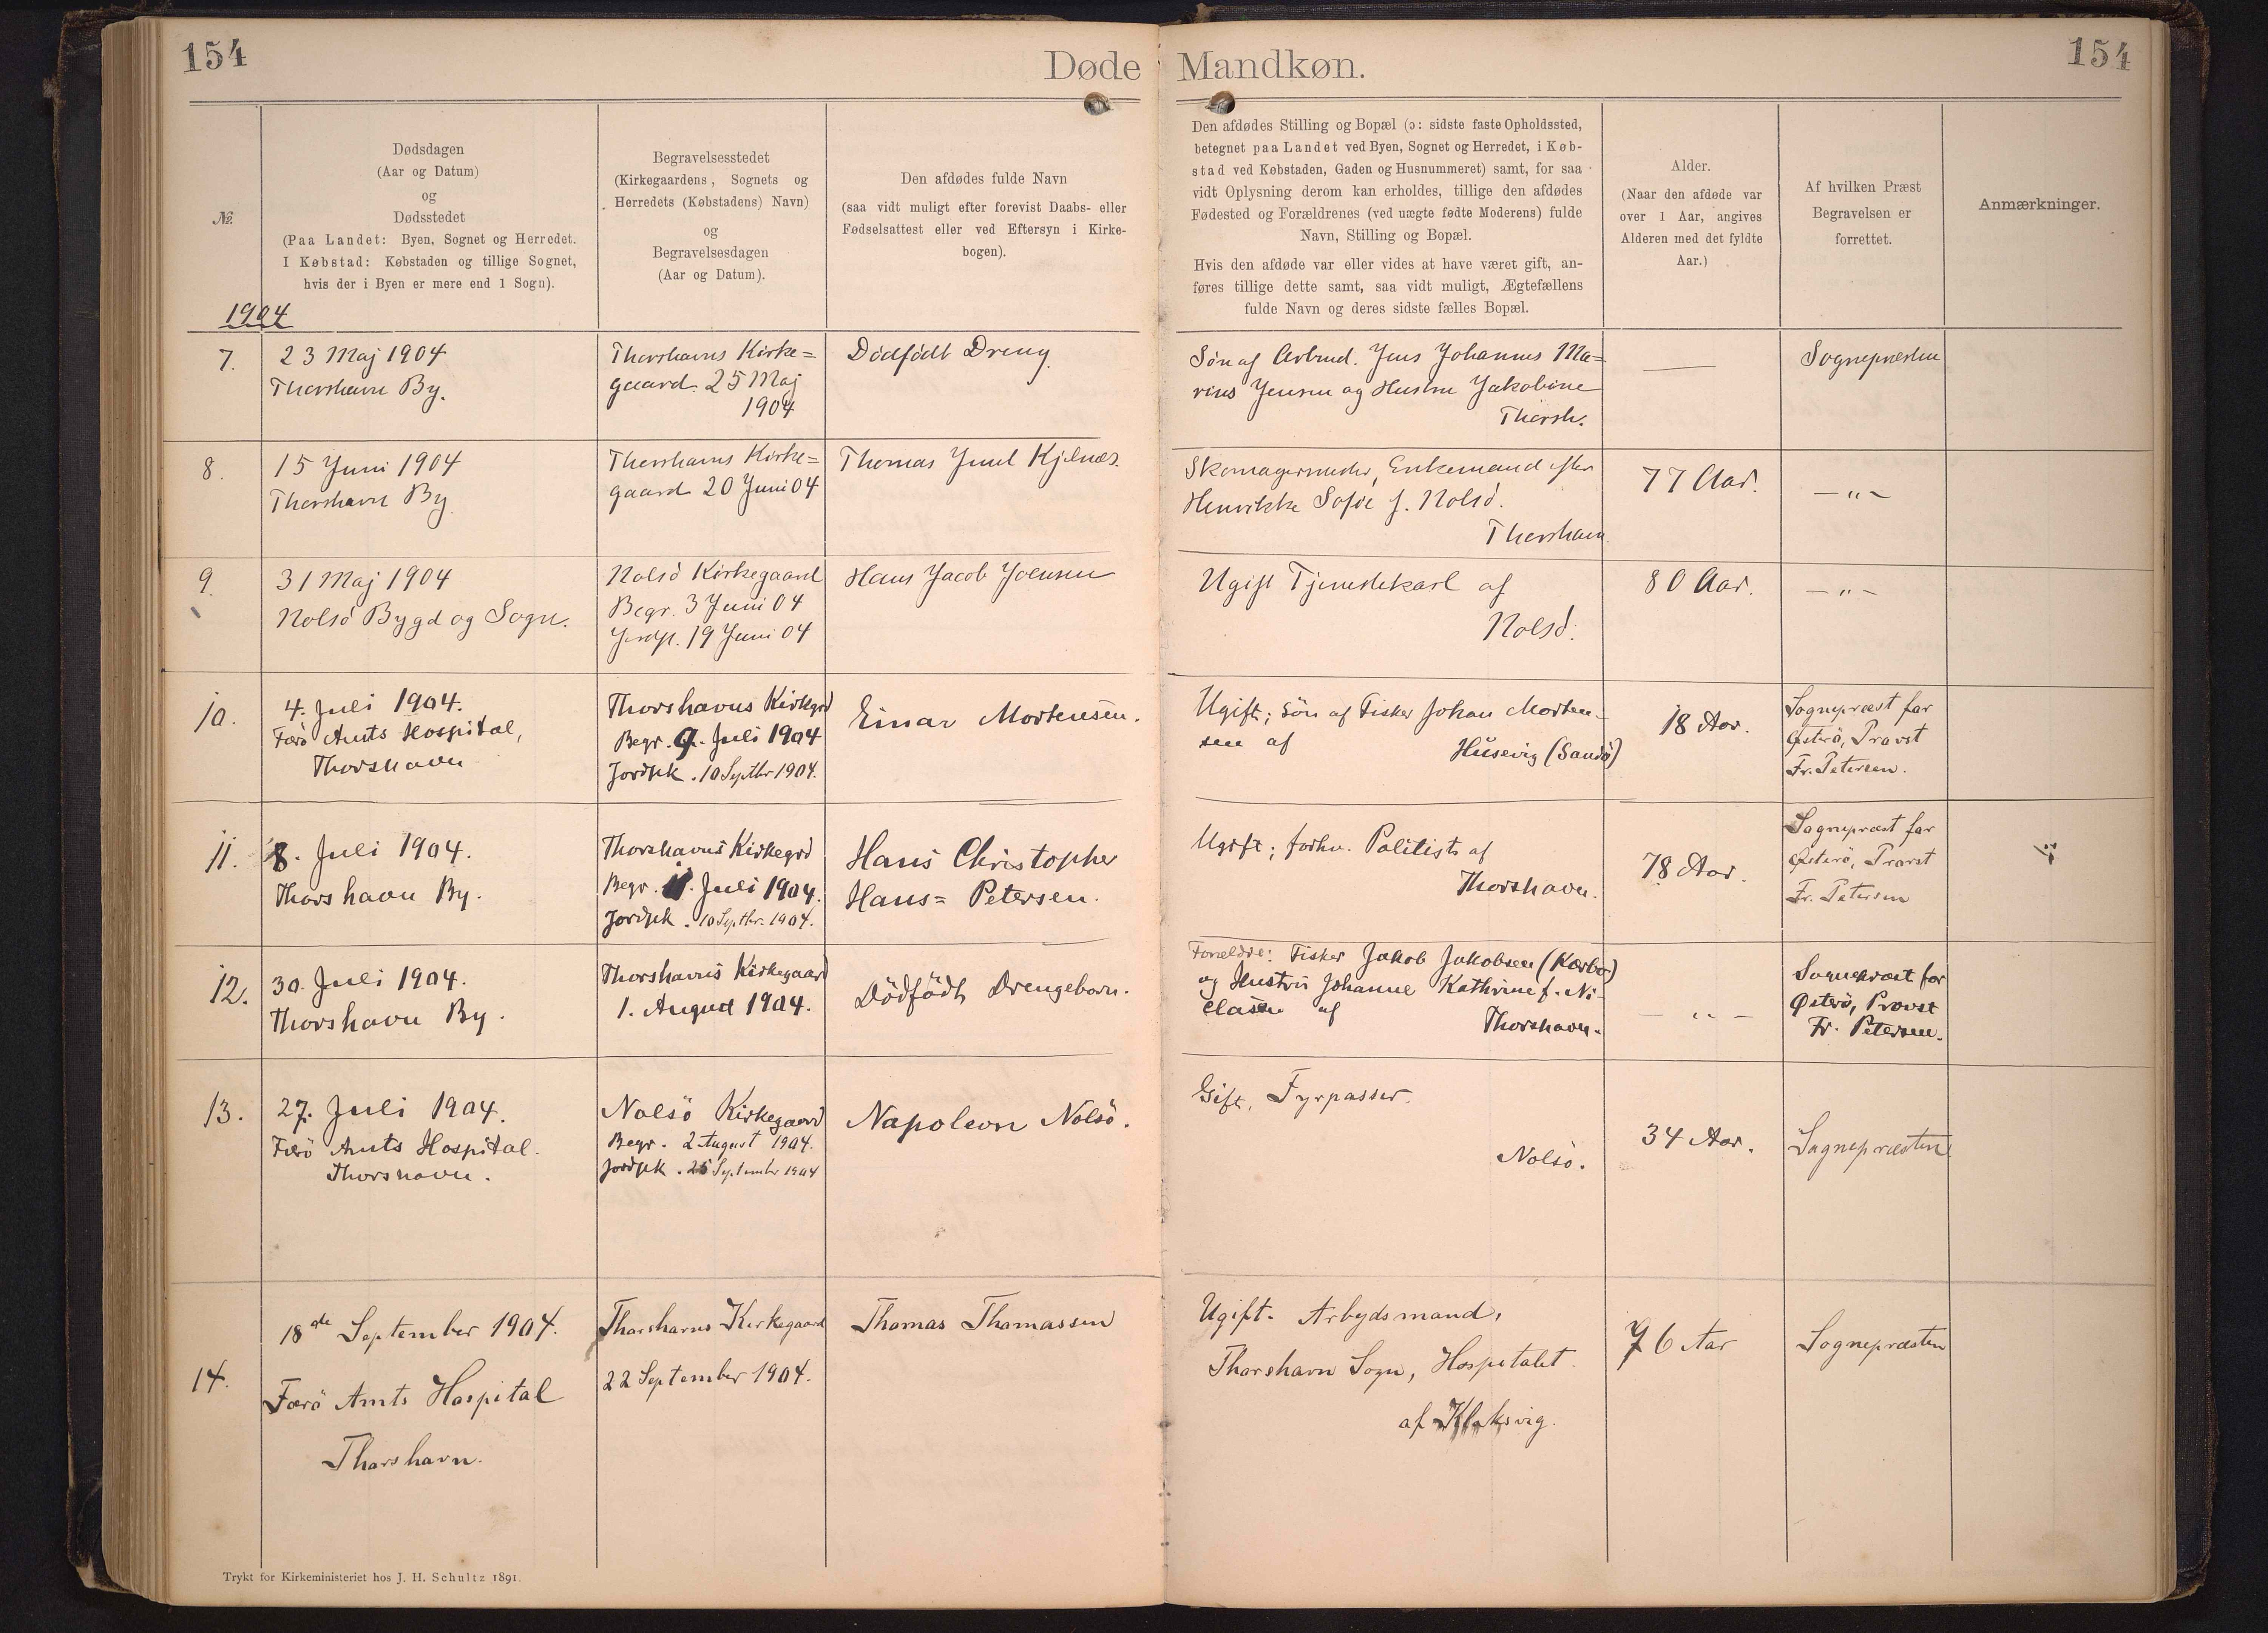 154
Døde Mandkøn.
154
№
Dødsdagen
(Aar og Datum)
og
Dødsstedet
(Paa Landet: Byen, Sognet og Herredet.
I Købstad: Købstaden og tillige Sognet,
hvis der i Byen er mere end 1 Sogn).
Begravelsesstedet
(Kirkegaardens, Sognets og
Herredets (Købstadens) Navn)
og
Begravelsesdagen
(Aar og Datum).
Den afdødes fulde Navn
(saa vidt muligt efter forevist Daabs- eller
Fødselsattest eller ved Eftersyn i Kirke-
bogen).
Den afdødes Stilling og Bopæl (ɔ: sidste faste Opholdssted,
betegnet paa Landet ved Byen, Sognet og Herredet, i Køb-
stad ved Købstaden, Gaden og Husnummeret) samt, for saa
vidt Oplysning derom kan erholdes, tillige den afdødes
Fødested og Forældrenes (ved uægte fødte Moderens) fulde
Navn, Stilling og Bopæl.
Hvis den afdøde var eller vides at have været gift, an-
føres tillige dette samt, saa vidt muligt, Ægtefællens
fulde Navn og deres sidste fælles Bopæl.
Alder.
(Naar den afdøde var
over 1 Aar, angives
Alderen med det fyldte
Aar.)
Af hvilken Præst
Begravelsen er
forrettet.
Anmærkninger.
1904
7.
23 Maj 1904
Thorshavn By.
Thorshavns Kirke=
gaard. 25 Maj
1904
Dödfödt Dreng
Søn af Arbmd. Jens Johannes Ma=
rius Jensen og Hustru Jakobine
Thorsh.
—
Sognepræsten
8.
15 Juni 1904
Thorshavn By
Thorshavns Kirke=
gaard 20 Juni 04
Thomas Juul Kjelnæs.
Skomagermester, Enkemand efter
Henrikke Sofie f. Nolsö.
Thorshavn
77 Aar.
— " —
9.
31 Maj 1904
Nolsö Bygd og Sogn.
Nolsö Kirkegaard
Begr. 3 Juni 04
Jordp. 19 Juni 04
Hans Jacob Joensen
Ugift Tjenestekarl af
Nolsö.
80 Aar.
— " —
10.
4. Juli 1904.
Færö Amts Hospital,
Thorshavn
Thorshavns Kirkegrd
Begr. 9. Juli 1904
Jordpk. 10 Septbr 1904.
Einar Mortensen.
Ugift; Sön af Fisker Johan Morten-
sen af Húsevig (Sandö)
18 Aar.
Sognepræst for
Østerö, Provst
Fr. Petersen.
11.
8. Juli 1904.
Thorshavn By.
Thorshavns Kirkegrd
Begr. 11. Juli 1904.
Jordpk. 10 Septbr. 1904.
Hans Christopher
Hans= Petersen.
Ugift; forhv. Politist af
Thorshavn.
78 Aar.
Sognepræst for
Østerö, Provst
Fr. Petersen
12.
30. Juli 1904.
Thorshavn By.
Thorshavns Kirkegaard
1. August 1904.
Dödfödt Drengebarn.
Forældre: Fisker Jakob Jakobsen (Kærbo)
og Hustru Johanne Kathrine f. Ni-
clasen af Thorshavn.
— " —
Sognepræst for
Østerö, Provst
Fr. Petersen.
13.
27. Juli 1904.
Færö Amts Hospital.
Thorshavn.
Nolsö Kirkegaard
Begr. 2 August 1904.
Jordpk. 25 September 1904
Napoleon Nolsö.
Gift, Fyrpasser.
Nolsö.
34 Aar.
Sognepræsten
14.
18de September 1904.
Færö Amts Hospital
Thorshavn.
Thorshavns Kirkegaard
22 September 1904.
Thomas Thomassen
Ugift. Arbejdsmand,
Thorshavn Sogn, Hospitalet.
af Klaksvig.
76 Aar
Sognepræsten
Trykt for Kirkeministeriet hos J. H. Schultz 1891.